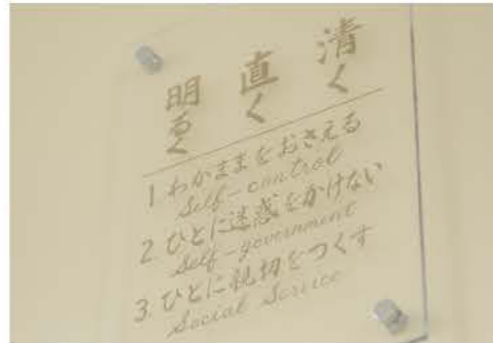 清く
直く
明るく
1 わがままをおさえる
Self-control
2 ひとに迷惑をかけない
Self-government
3. ひとに親切をつくす
Social Service